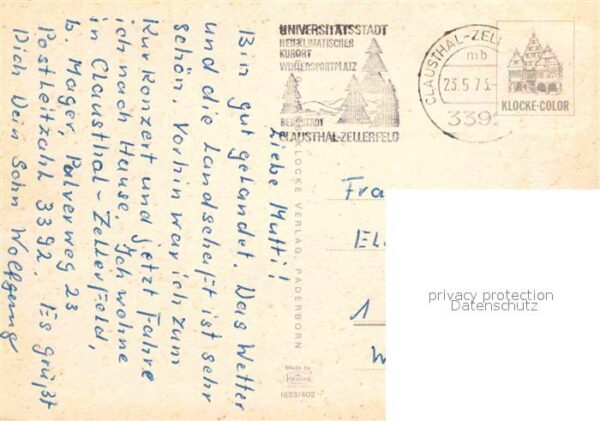 Liebe Mutti!
Bin gut gelandet. Das Wetter
und die Landschaft ist sehr
schön. Vorhin war ich zum
Kurkonzert und jetzt fahre
ich nach Hause. Ich wohne
in Clausthal-Zellerfeld,
b. Mager, Pulverweg 23
Postleitzahl 3392. Es grüßt
Dich Dein Sohn Wolfgang
UNIVERSITÄTSSTADT
HEILKLIMATISCHER
KURORT
WINTERSPORTPLATZ
BERGSTADT
CLAUSTHAL-ZELLERFELD
CLAUSTHAL-ZELL
mb
23.5.73
339
KLOCKE-COLOR
KLOCKE VERLAG, PADERBORN
Made by
1633/402
Fra
EL
1
W
privacy protection
Datenschutz